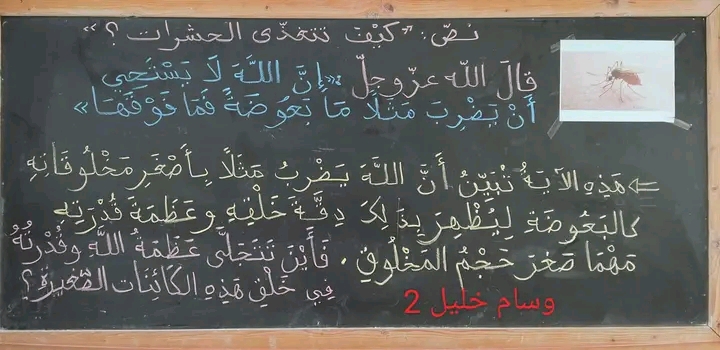 نصّ: "كَيْفَ تتغذّى الحشرات ؟"
قالَ اللّه عزّ وجلّ «إِنَّ اللَّهَ لَا يَسْتَحْيِي
أَنْ يَضْرِبَ مَثَلًا مَا بَعُوضَةً فَمَا فَوْقَهَا»
⇐ هَذِهِ الآيَةُ تُبَيِّنُ أَنَّ اللَّهَ يَضْرِبُ مَثَلًا بِأَصْغَرِ مَخْلُوقَاتِهِ
كالبَعُوضَةِ لِيُظْهِرَ بِذَلِكَ دِقَّةَ خَلْقِهِ وَعَظَمَةَ قُدْرَتِهِ
مَهْمَا صَغُرَ حَجْمُ المَخْلُوقِ. فَأَيْنَ تَتَجَلَّى عَظَمَةُ اللَّهِ وَقُدْرَتُهُ
فِي خَلْقِ هَذِهِ الكَائِنَات الصَّغِيرَة؟
وسام خليل 2